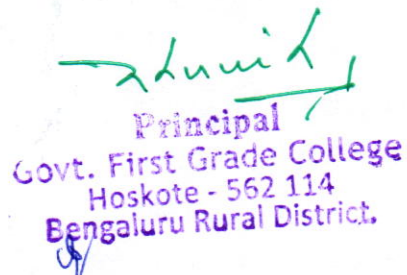 Principal
Govt. First Grade College
Hoskote - 562 114
Bengaluru Rural District.